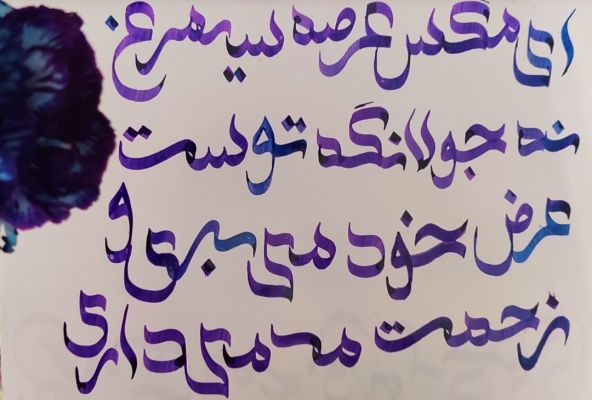 ای مگس عرصه سیمرغ
نه جولانگه توست
عرض خود می بری و
زحمت ما می داری